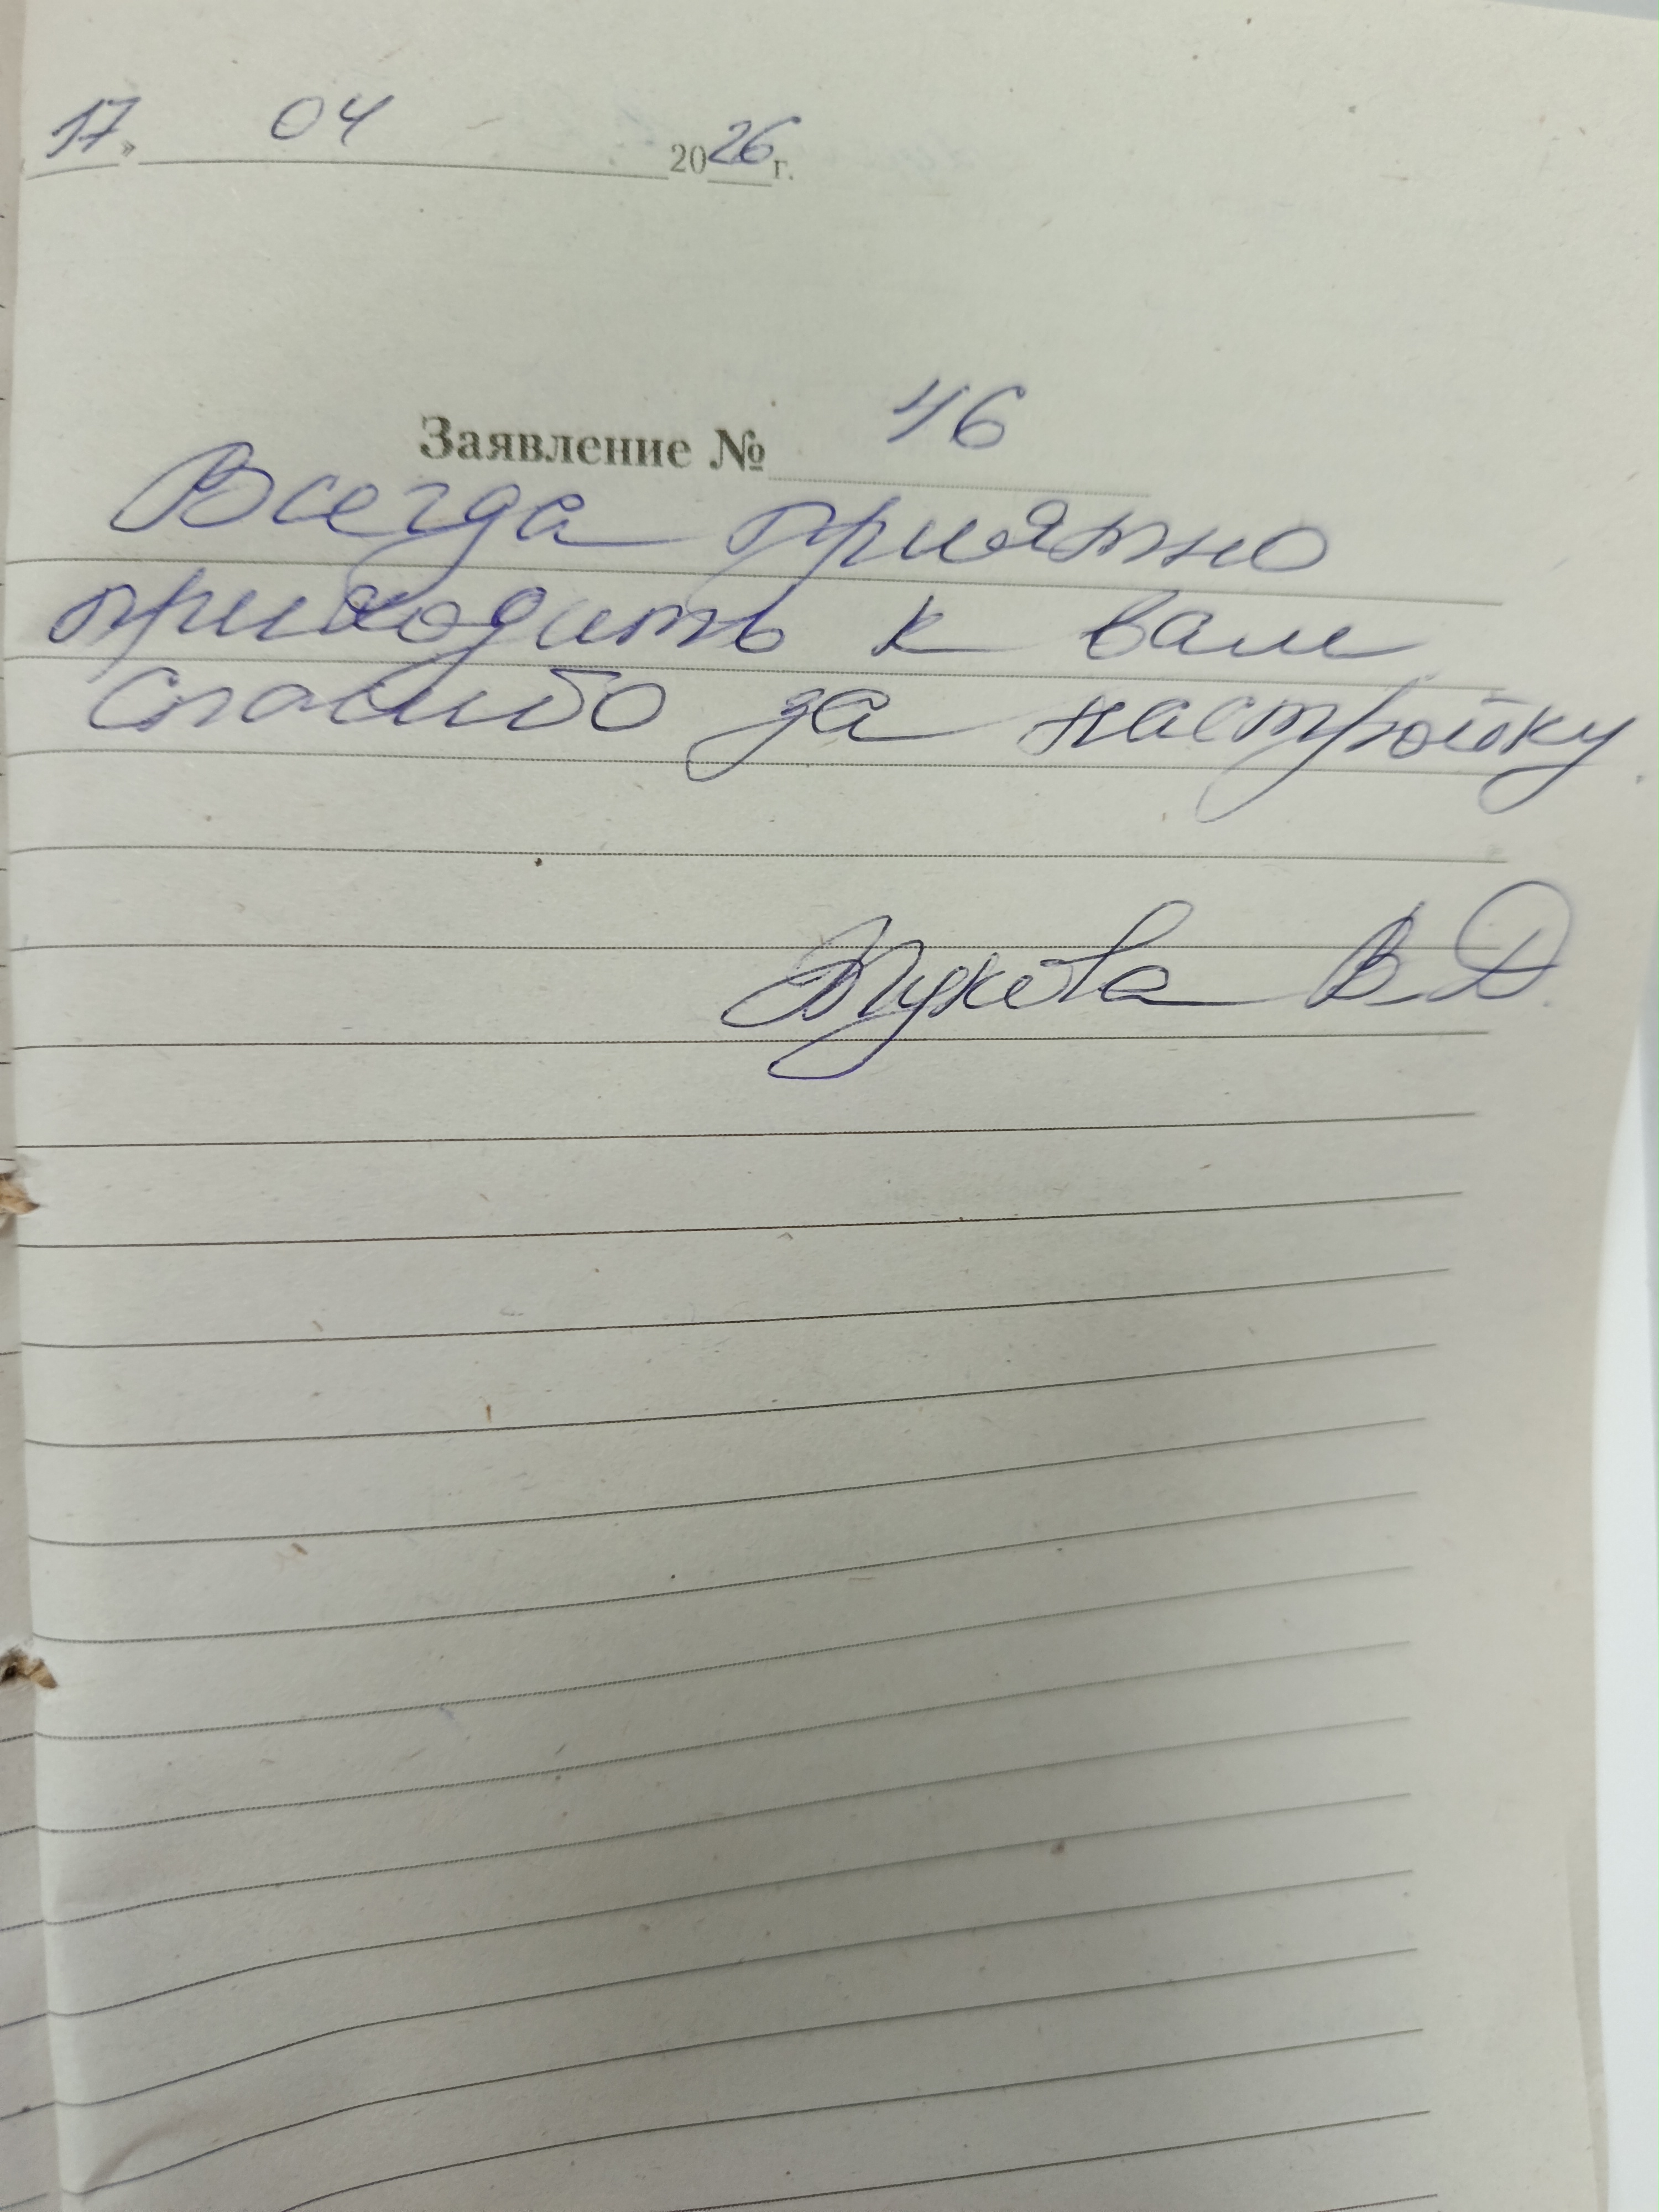 17» 04 2026 г.
Заявление № 46
Всегда приятно
приходить к вам
Спасибо за настройку
В. Д.